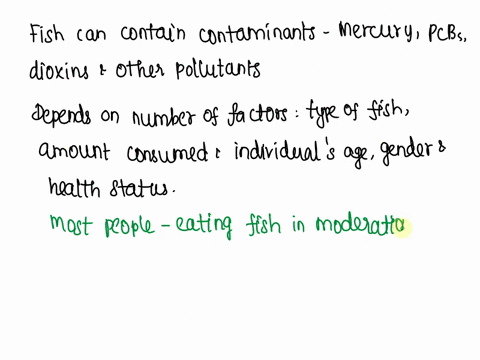 Fish can contain contaminants - Mercury, PCBs,
dioxins & other pollutants
Depends on number of factors: type of fish,
amount consumed & individual's age, gender &
health status.
Most people - eating fish in moderatio